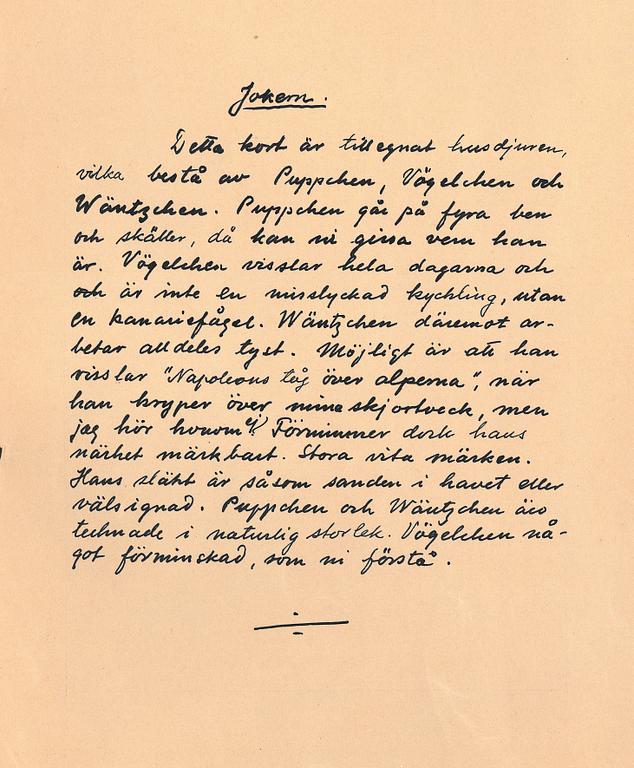 Jokern.
Detta kort är tillegnat husdjuren,
vilka bestå av Puppchen, Vögelchen och
Wäntzchen. Puppchen går på fyra ben
och skäller, då kan ni gissa vem han
är. Vögelchen visslar hela dagarna och
och är inte en misslyckad kychling, utan
en kanariefågel. Wäntzchen däremot ar-
betar alldeles tyst. Möjligt är att han
visslar "Napoleons tåg över alperna", när
han kryper över mina skjortveck, men
jag hör honom ej! Förnimmer dock hans
närhet märkbart. Stora vita märken.
Hans släkt är såsom sanden i havet eller
välsignad. Puppchen och Wäntzchen äro
tecknade i naturlig storlek. Vögelchen nå-
got förminskad, som ni förstå.